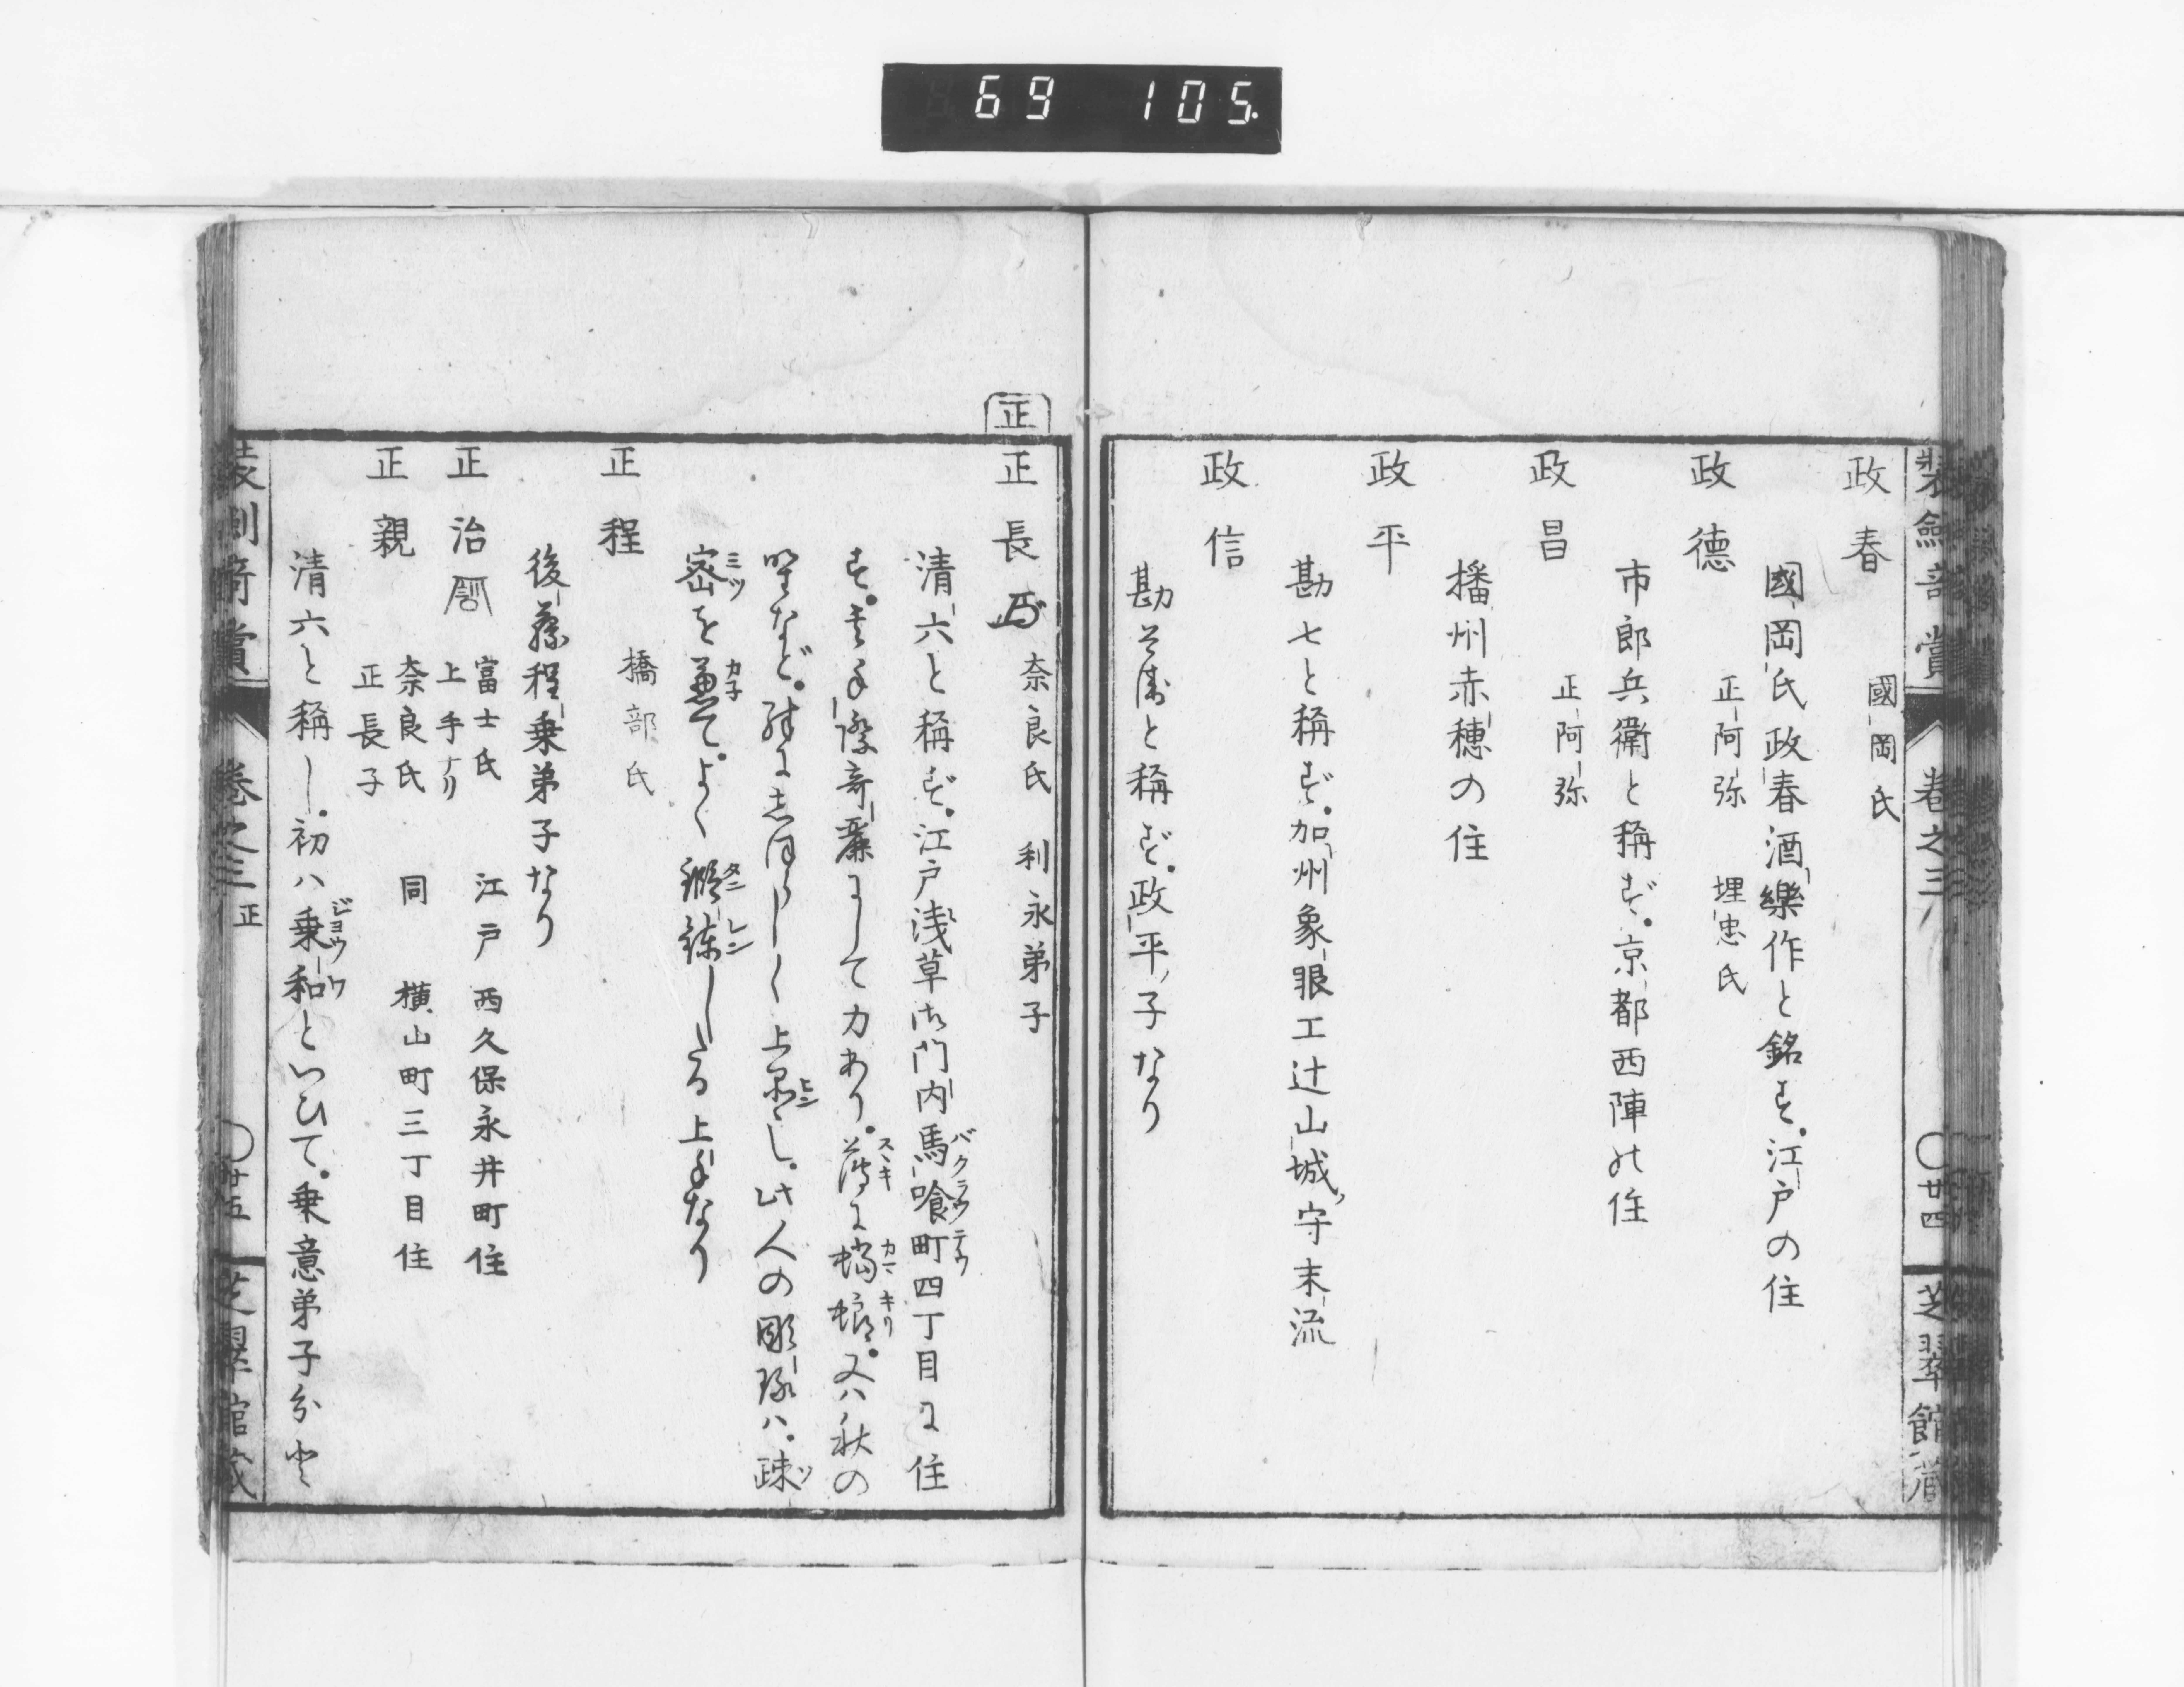 69 105
裝劍奇賞 卷之三 〇廿四 芝翠館藏
政春 國岡氏
國岡氏政春酒樂作と銘す。江戸の住
政德 正阿弥 埋忠氏
市郎兵衞と稱ず。京都西陣の住
政昌 正阿弥
播州赤穗の住
政平
勘七と稱ず。加州象眼工辻山城守末流
政信
勘兵衞と稱ず。政平ノ子なり
正
正長 奈良氏 利永弟子
清六と稱ず。江戸浅草御門内馬喰町四丁目に住
す。其手際奇麗にして力あり。薄に蟷螂。又ハ秋の
野など。殊にしほらしく上品し。此人の彫琢ハ。疎
密を兼て。よく鍛錬したる上手なり
正程 橋部氏
後藤程乗弟子なり
正治 富士氏 上手ナリ 江戸西久保永井町住
正親 奈良氏 正長子 同 横山町三丁目住
清六と稱し。初ハ乗和といひて。乗意弟子分と
裝劍奇賞 卷之三 正 〇廿五 芝翠館藏